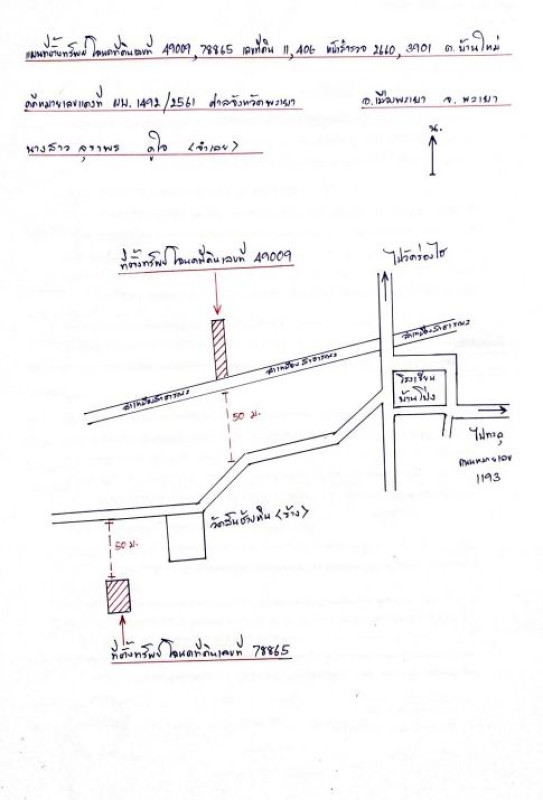 แผนที่ตั้งทรัพย์โฉนดที่ดินเลขที่ 49009, 78865 เลขที่ดิน 11, 406 หน้าสำรวจ 2660, 3901 ต.บ้านใหม่
คดีหมายเลขแดงที่ ผบ. 1492/2561 ศาลจังหวัดพะเยา อ.เมืองพะเยา จ.พะเยา
นางสาว ดูใจ <จำเลย>
น.
ที่ตั้งทรัพย์โฉนดที่ดินเลขที่ 49009
ไปวัดร่องไฮ
ลำเหมืองสาธารณะ
ลำเหมืองสาธารณะ
ลำเหมืองสาธารณะ
โรงเรียน
บ้านโป่ง
50 ม.
ไปทาง
ถนนหมายเลข
1193
<ร้าง>
50 ม.
ที่ตั้งทรัพย์โฉนดที่ดินเลขที่ 78865